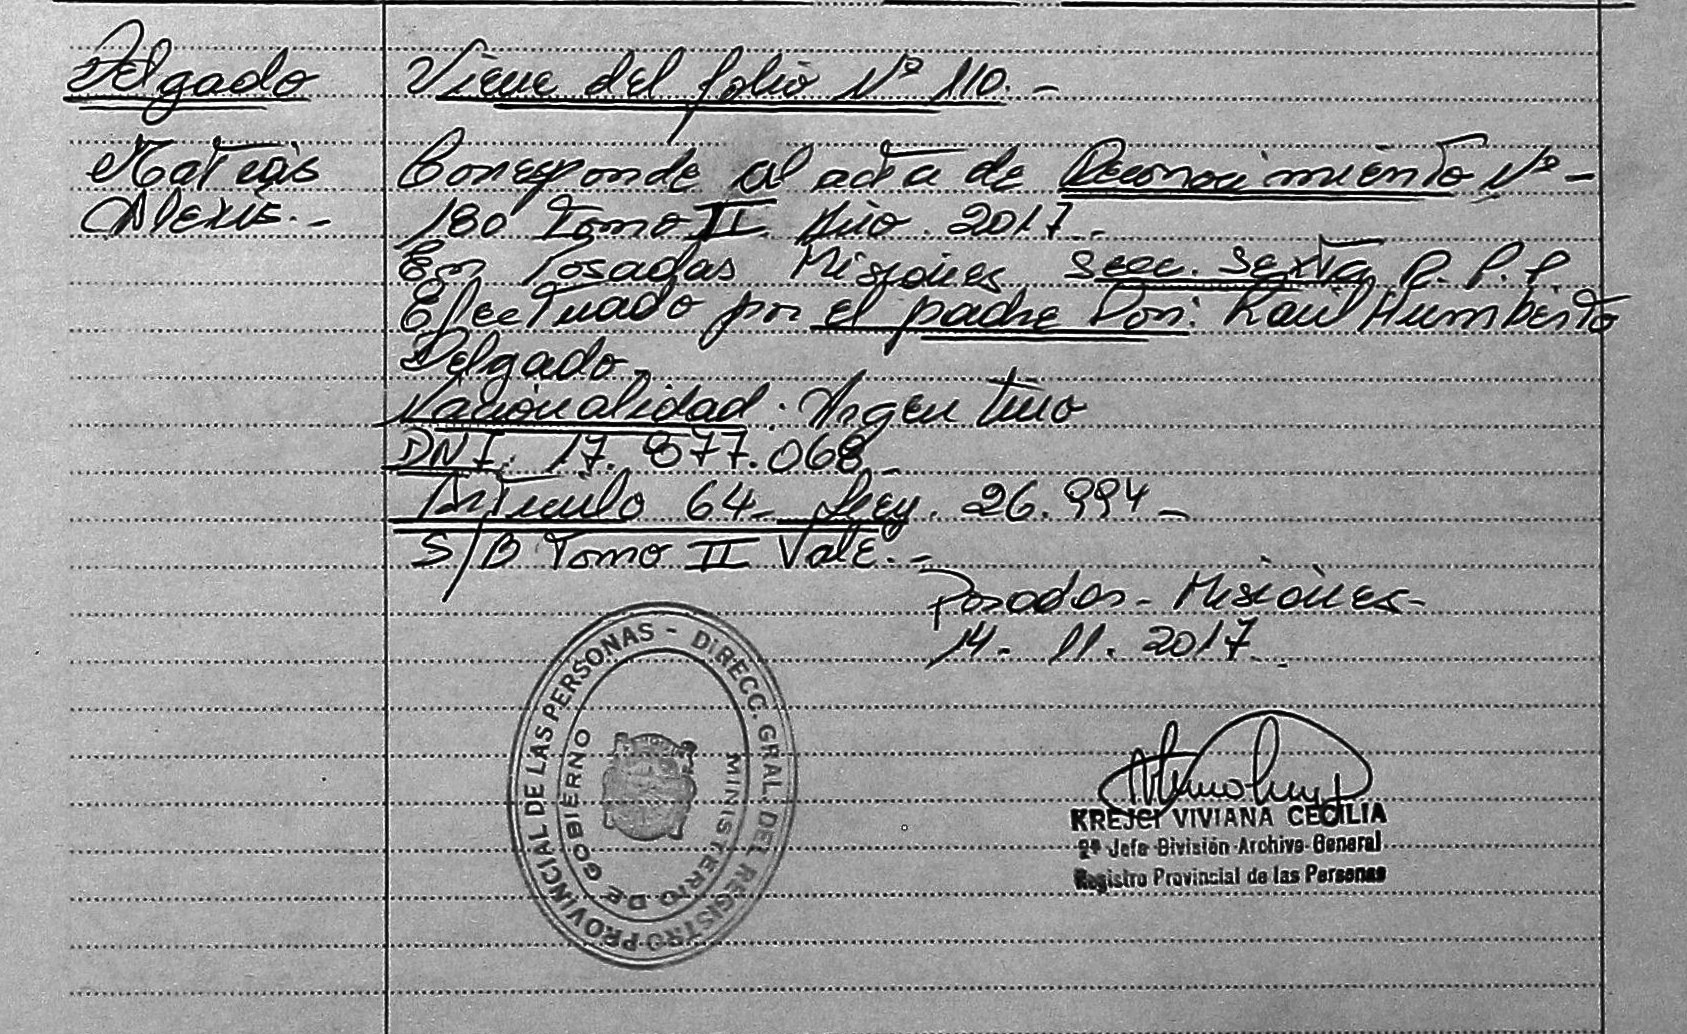 Delgado
Matias
Alexis.-
Viene del folio Nº 110.-
Corresponde al acta de Reconocimiento Nº-
180 Tomo II. Año. 2017.-
En Posadas Misiones Secc. Sexta R.P.P
Efectuado por el padre Don: Raúl Humberto
Delgado.
Nacionalidad: Argentino
DNI. 17.877.068.-
Artículo 64- Ley. 26.994-
S/B Tomo II Vale.-
Posadas- Misiones-
14. 11. 2017.-
DIRECC. GRAL. DEL REGISTRO PROVINCIAL DE LAS PERSONAS -
MINISTERIO DE GOBIERNO
KREJCI VIVIANA CECILIA
2º Jefe División Archivo General
Registro Provincial de las Personas